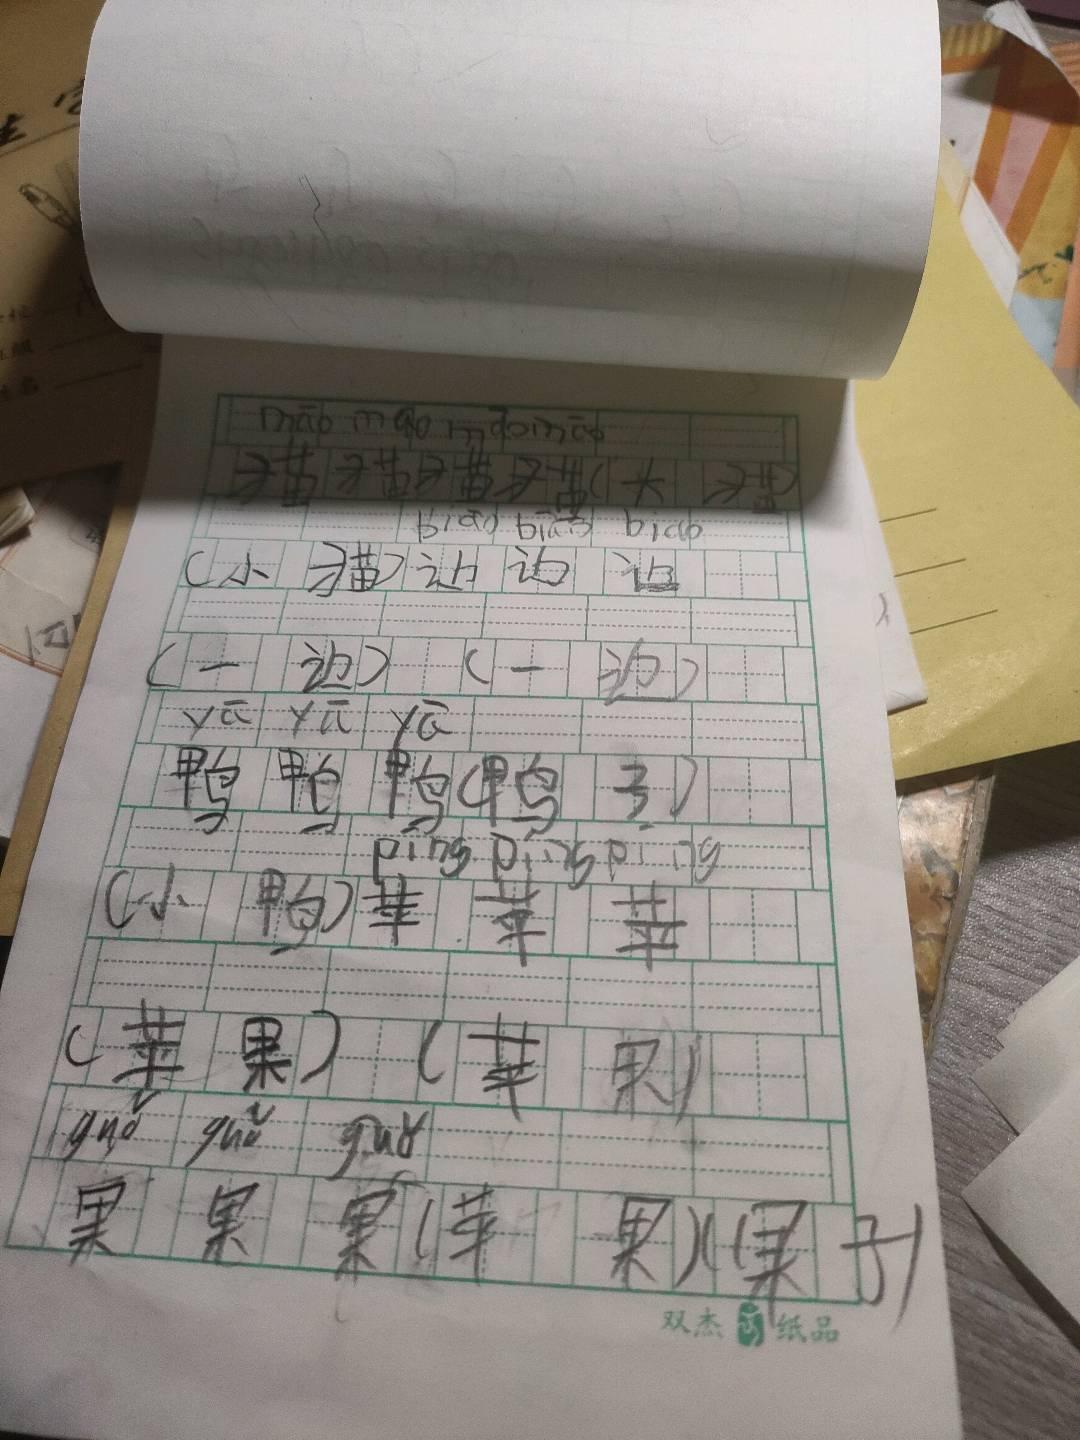 māo māo māo māo
猫 猫 猫 猫 (大 猫)
biāo biāo biao
(小 猫) 边 边 边
(一 边) (一 边)
yā yā yā
鸭 鸭 鸭 (鸭 子)
píng píng píng
(小 鸭) 苹 苹 苹
(苹 果) (苹 果)
guǒ guǒ guǒ
果 果 果 (苹 果) (果 子)
双杰 纸品